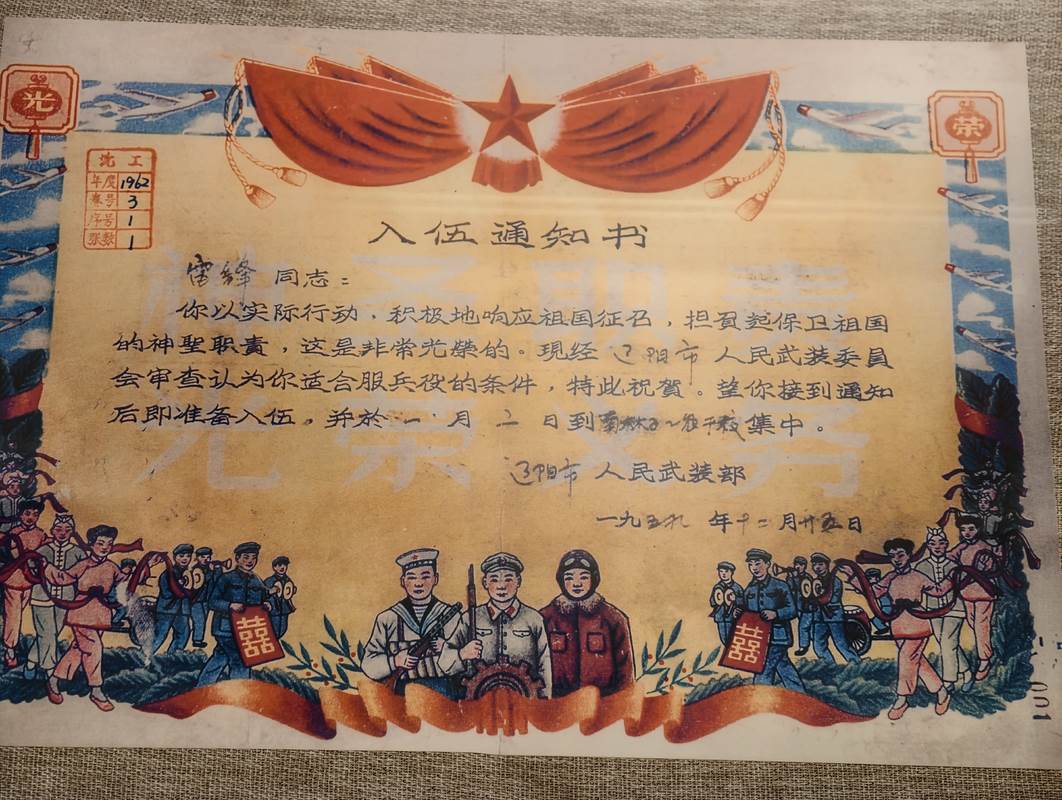 光
荣
沈工
年度 1962
卷号 3
序号 1
张数 1
入伍通知书
雷锋 同志：
你以实际行动，积极地响应祖国征召，担负起保卫祖国
的神聖职責，这是非常光榮的。現经 辽阳市 人民武装委員
会审查认为你适合服兵役的条件，特此祝賀。望你接到通知
后即准备入伍，并於 一 月 二 日到 集中。
辽阳市 人民武装部
一九五九 年十二月廿五日
神圣职责
光荣义务
囍
囍
001